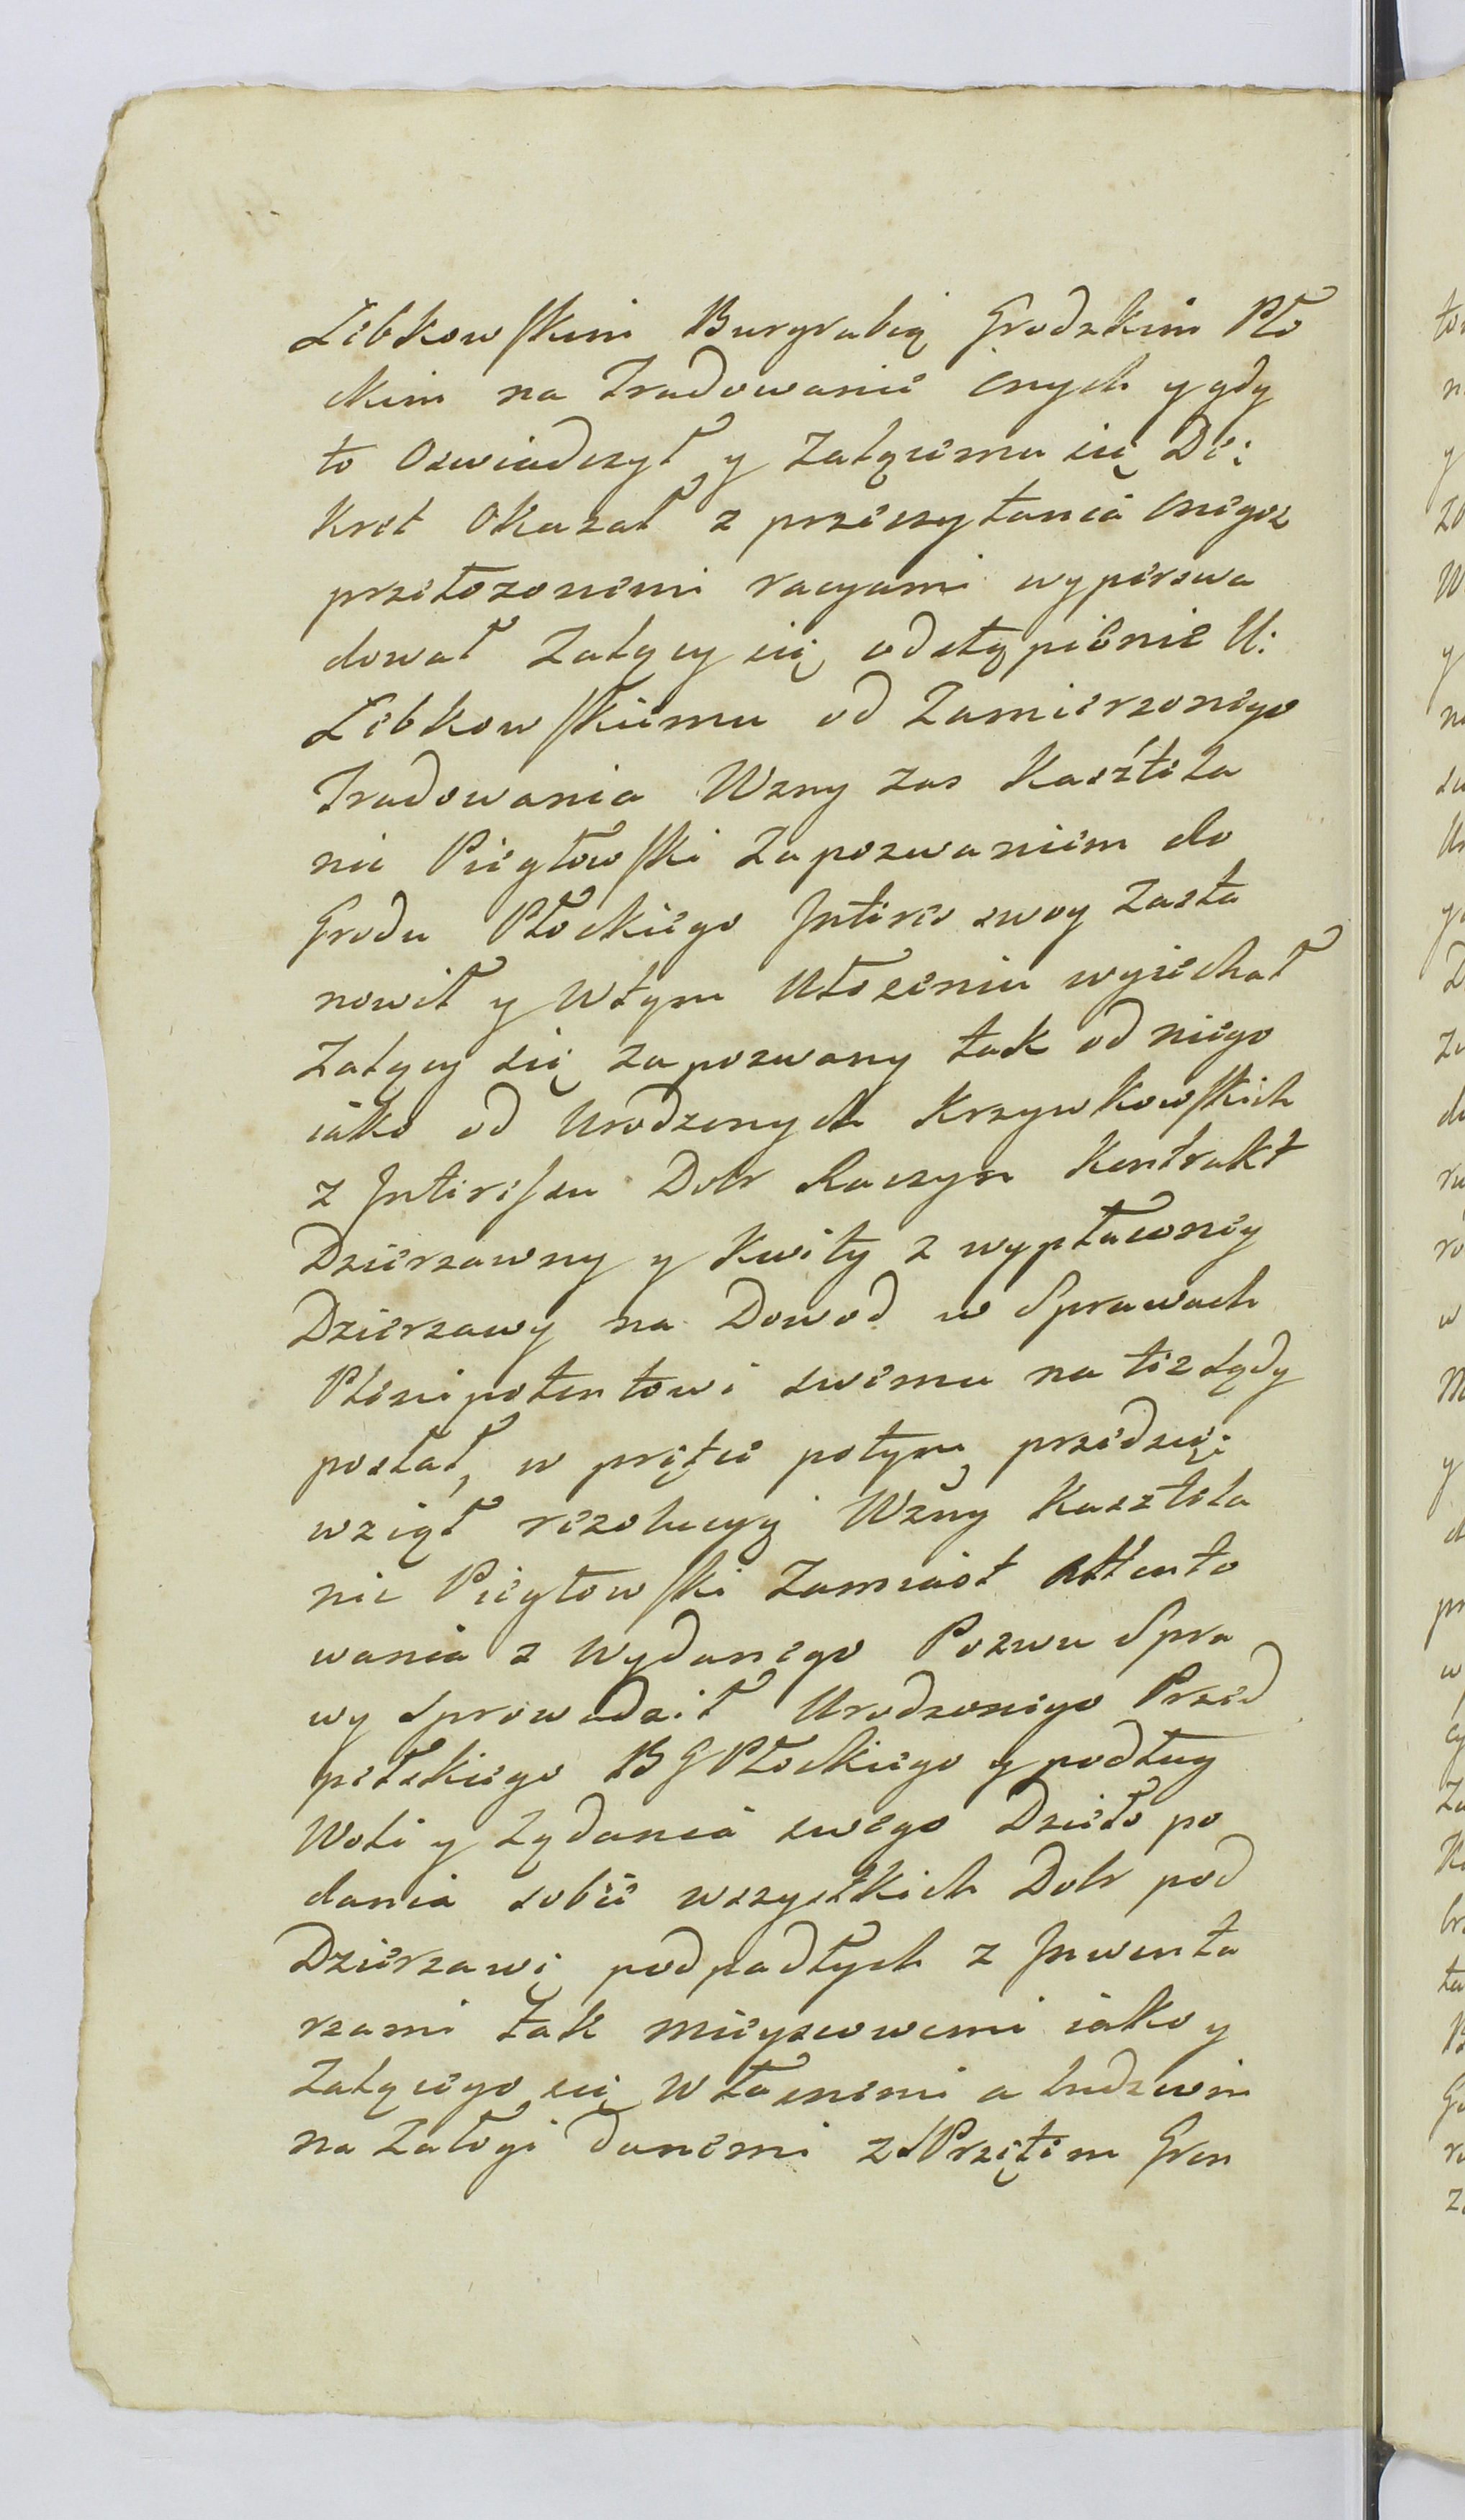 Lebkowskim Burgrabią Grodzkim Pło
ckim na Tradowanie onych y gdy
to Oswiadczył y Zalącemu się De:
kret Okazał z przeczytania onegoz
przełozonemi racyami wyperswa
dował Zalący się odstąpienie U:
Lebkowskiemu od Zamierzonego
Tradowania Wzny zas Kasztela
nic Piegłowski Zapozwaniem do
Grodu Płockiego Interes swoy Zasta
nowił y w tym Ułozeniu wyiechał
Zalący się zapozwany tak od niego
iako od Urodzonych Krzywkowskich
z Interessu Dobr Raczyn Kontrakt
Dzierzawny y Kwity z wypłaconey
Dzierzawy na Dowod w Sprawach
Plenipotentowi swemu na tez sądy
posłał, w prętce potym przedsię:
wziął rezolucyą Wzny Kasztela
nic Piegłowski Zamiast attento
wania z Wydanego Pozwu Spra
wy Sprowadził Urodzonego Przed
pełskiego B G Płockiego y podług
Woli y Ządania swego Dzieło po
dania sobie wszystkich Dobr pod
Dzierzawę podpadłych z Inwenta
rzami tak mieyscowemi iako y
Zalącego się Własnemi a ludziom
na Załogi danemi z SPrzętem Gron